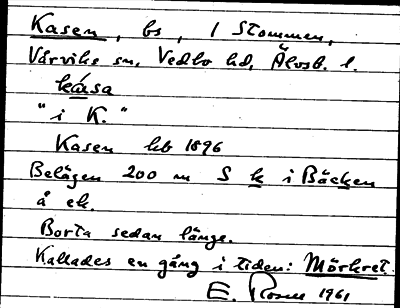 Kasen, bs, 1 Stommen,
Vårviks sn, Vedbo hd, Älvsb. l.
kása
"i K."
Kasen kb 1896
Belägen 200 m S k i Bäcken
å ek.
Borta sedan länge.
Kallades en gång i tiden: Mörkret.
E. Rosell 1961